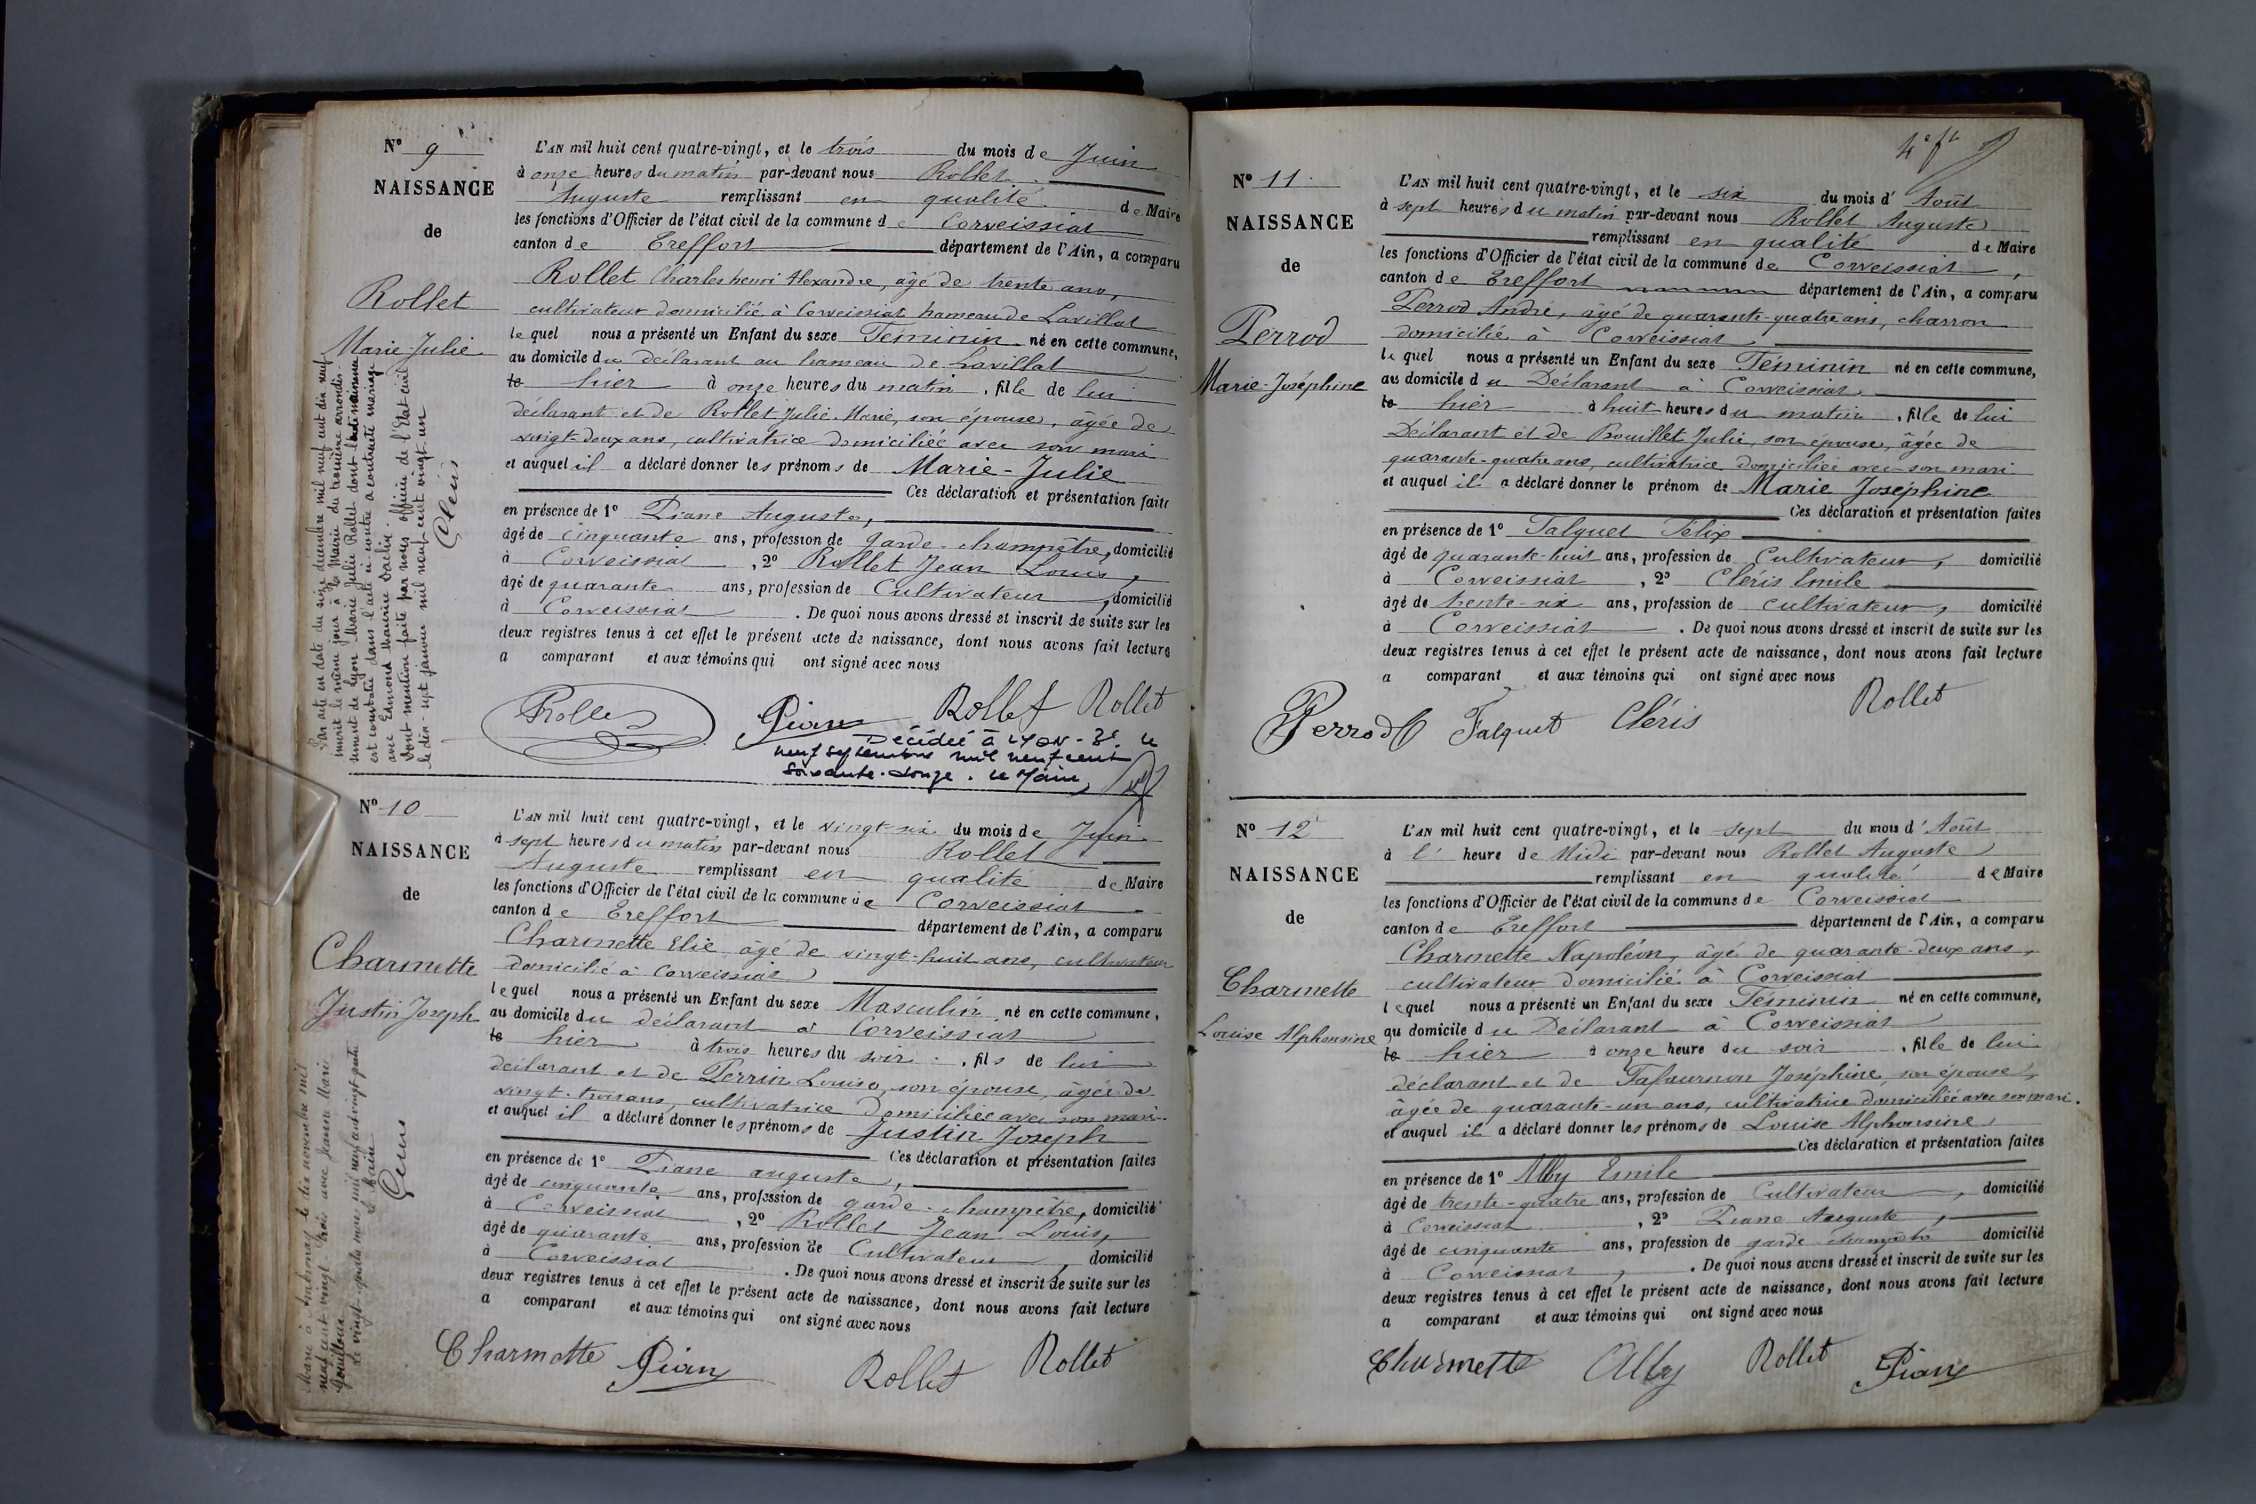 Nº 9
NAISSANCE
de
Rollet
Marie-Julie
Par acte en date du seize décembre mil neuf cent dix neuf
inscrit le même jour à la Mairie du troisième arrondis-
sement de Lyon Marie Julie Rollet dont la naissance
est constatée dans l'acte ci-contre a contracté mariage
avec Edmond Maurice
dont mention faite par nous officier de l'Etat civil
le dix-sept janvier mil neuf cent vingt un
Cléris
L'AN mil huit cent quatre-vingt, et le trois du mois de Juin
à onze heures du matin par-devant nous Rollet
Auguste remplissant en qualité de Maire
les fonctions d'Officier de l'état civil de la commune de Corveissiat
canton de Treffort département de l'Ain, a comparu
Rollet Charles henri Alexandre, âgé de trente ans,
cultivateur domicilié à Corveissiat hameau de Lavillat
lequel nous a présenté un Enfant du sexe Féminin né en cette commune,
au domicile du déclarant au hameau de Lavillat
le hier à onze heures du matin, fille de lui
déclarant et de Rollet Julie Marie, son épouse, âgée de
vingt-deux ans, cultivatrice domiciliée avec son mari
et auquel il a déclaré donner les prénoms de Marie-Julie
Ces déclaration et présentation faites
en présence de 1º Piane Auguste,
âgé de cinquante ans, profession de garde-champêtre, domicilié
à Corveissiat, 2º Rollet Jean Louis,
âgé de quarante ans, profession de Cultivateur, domicilié
à Corveissiat. De quoi nous avons dressé et inscrit de suite sur les
deux registres tenus à cet effet le présent acte de naissance, dont nous avons fait lecture
a comparant et aux témoins qui ont signé avec nous
Rollet Piane Rollet Rollet
Décédée à LYON-3e le
neuf septembre mil neuf cent
soixante-donze. Le Maire,
Nº 10
NAISSANCE
de
Charmette
Justin Joseph
Marié à le dix novembre mil
neuf cent vingt trois avec Jeanne Marie
Gouilloux.
Le vingt quatre mars mil neuf cent vingt quatre
Le Maire
L'AN mil huit cent quatre-vingt, et le vingt-six du mois de Juin
à sept heures du matin par-devant nous Rollet
Auguste remplissant en qualité de Maire
les fonctions d'Officier de l'état civil de la commune de Corveissiat
canton de Treffort département de l'Ain, a comparu
Charmette Elie, âgé de vingt-huit ans, cultivateur
domicilié à Corveissiat
lequel nous a présenté un Enfant du sexe Masculin, né en cette commune,
au domicile du déclarant à Corveissiat
le hier à trois heures du soir, fils de lui
déclarant et de Perrin Louise, son épouse, âgée de
vingt-trois ans, cultivatrice domiciliée avec son mari
et auquel il a déclaré donner les prénoms de Justin Joseph
Ces déclaration et présentation faites
en présence de 1º Piane auguste,
âgé de cinquante ans, profession de garde-champêtre, domicilié
à Corveissiat, 2º Rollet Jean Louis,
âgé de quarante ans, profession de Cultivateur, domicilié
à Corveissiat. De quoi nous avons dressé et inscrit de suite sur les
deux registres tenus à cet effet le présent acte de naissance, dont nous avons fait lecture
a comparant et aux témoins qui ont signé avec nous
Charmette Piane Rollet Rollet
4e ft
Nº 11
NAISSANCE
de
Perrod
Marie-Joséphine
L'AN mil huit cent quatre-vingt, et le six du mois d'Août
à sept heures du matin par-devant nous Rollet Auguste
remplissant en qualité de Maire
les fonctions d'Officier de l'état civil de la commune de Corveissiat,
canton de Treffort département de l'Ain, a comparu
Perrod André, âgé de quarante-quatre ans, charron
domicilié à Corveissiat,
lequel nous a présenté un Enfant du sexe Féminin né en cette commune,
au domicile du Déclarant à Corveissiat,
le hier à huit heures du matin, fille de lui
Déclarant et de Bouillet Julie, son épouse, âgée de
quarante-quatre ans, cultivatrice domiciliée avec son mari
et auquel il a déclaré donner le prénom de Marie Joséphine
Ces déclaration et présentation faites
en présence de 1º Falquet Félix
âgé de quarante-huit ans, profession de Cultivateur, domicilié
à Corveissiat, 2º Cléris Emile
âgé de trente-six ans, profession de cultivateur, domicilié
à Corveissiat. De quoi nous avons dressé et inscrit de suite sur les
deux registres tenus à cet effet le présent acte de naissance, dont nous avons fait lecture
a comparant et aux témoins qui ont signé avec nous
Perrod Falquet Cléris Rollet
Nº 12
NAISSANCE
de
Charmette
Louise Alphonsine
L'AN mil huit cent quatre-vingt, et le sept du mois d'Août
à l' heure de Midi par-devant nous Rollet Auguste
remplissant en qualité de Maire
les fonctions d'Officier de l'état civil de la commune de Corveissiat
canton de Treffort département de l'Ain, a comparu
Charmette Napoléon, âgé de quarante-deux ans,
cultivateur domicilié à Corveissiat
lequel nous a présenté un Enfant du sexe Féminin né en cette commune,
au domicile du Déclarant à Corveissiat
le hier à onze heure du soir, fille de lui
déclarant et de Tafournon Joséphine, son épouse,
âgée de quarante-un ans, cultivatrice domiciliée avec son mari.
et auquel il a déclaré donner les prénoms de Louise Alphonsine
Ces déclaration et présentation faites
en présence de 1º Alby Emile
âgé de trente-quatre ans, profession de Cultivateur, domicilié
à Corveissiat, 2º Piane Auguste,
âgé de cinquante ans, profession de garde champêtre domicilié
à Corveissiat, . De quoi nous avons dressé et inscrit de suite sur les
deux registres tenus à cet effet le présent acte de naissance, dont nous avons fait lecture
a comparant et aux témoins qui ont signé avec nous
Charmette Alby Rollet Piane